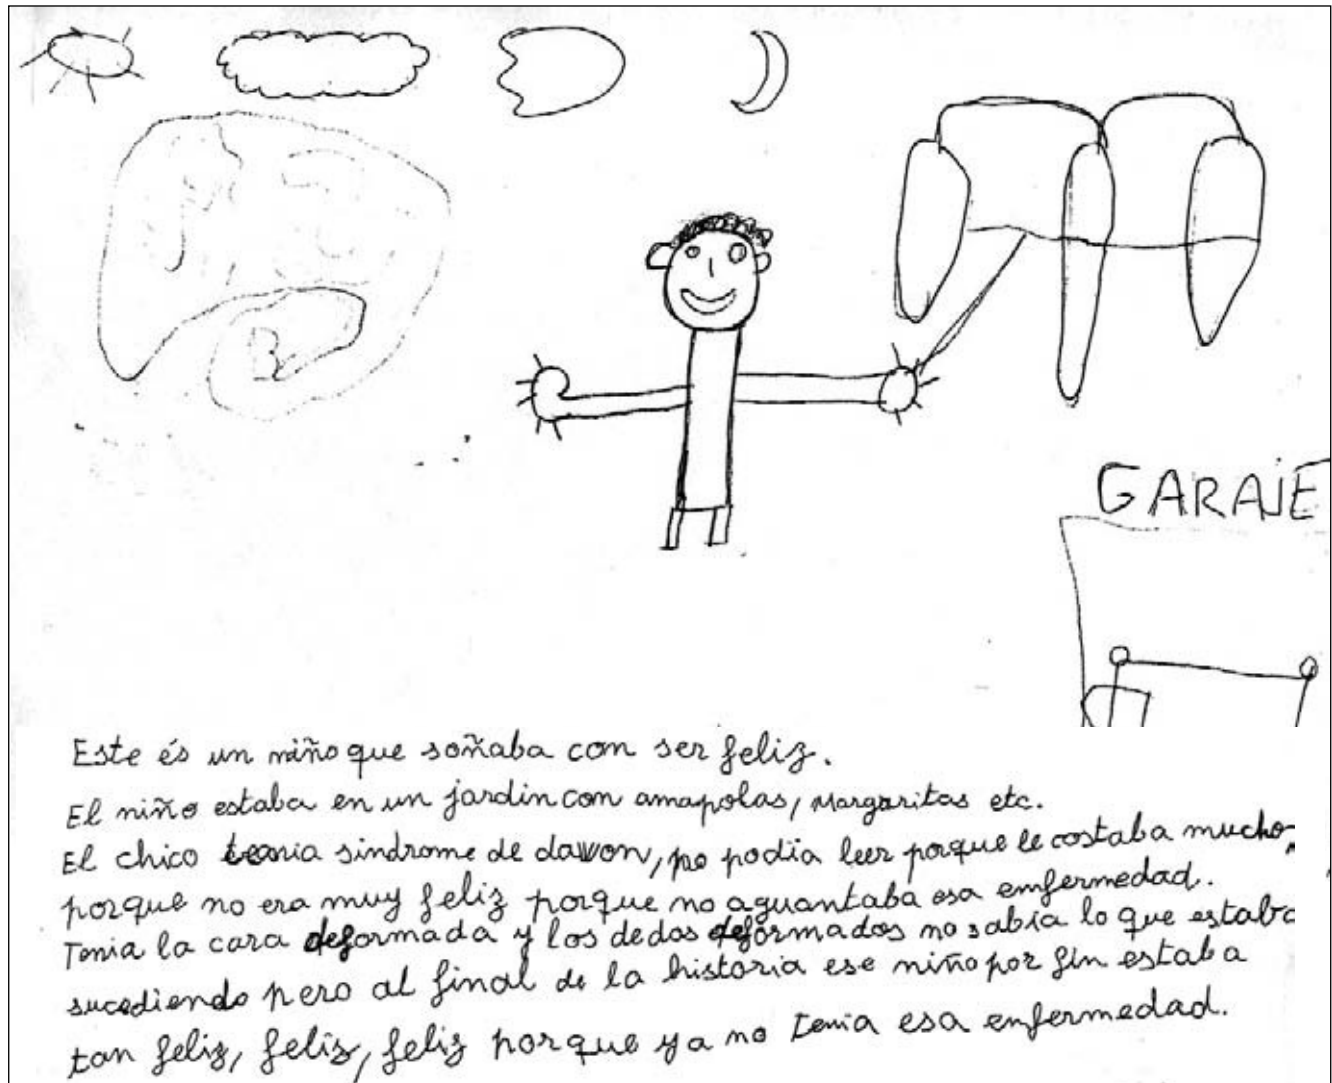 B
GARAJE
Este és un niño que soñaba con ser feliz.
El niño estaba en un jardin con amapolas, Margaritas etc.
El chico tenia sindrome de dawon, no podia leer porque le costaba mucho,
porque no era muy feliz porque no aguantaba esa enfermedad.
Tenia la cara deformada y los dedos deformados no sabia lo que estaba
sucediendo pero al final de la historia ese niño por fin estaba
tan feliz, feliz, feliz porque ya no tenia esa enfermedad.